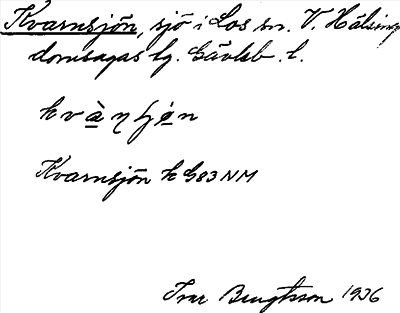 Kvarnsjön, sjö i Los sn. V. Hälsing
domsagas tg. Gävleb. l.
kvàηʃǿn
Kvarnsjön k G83NM
Ivar Bengtsson 1936